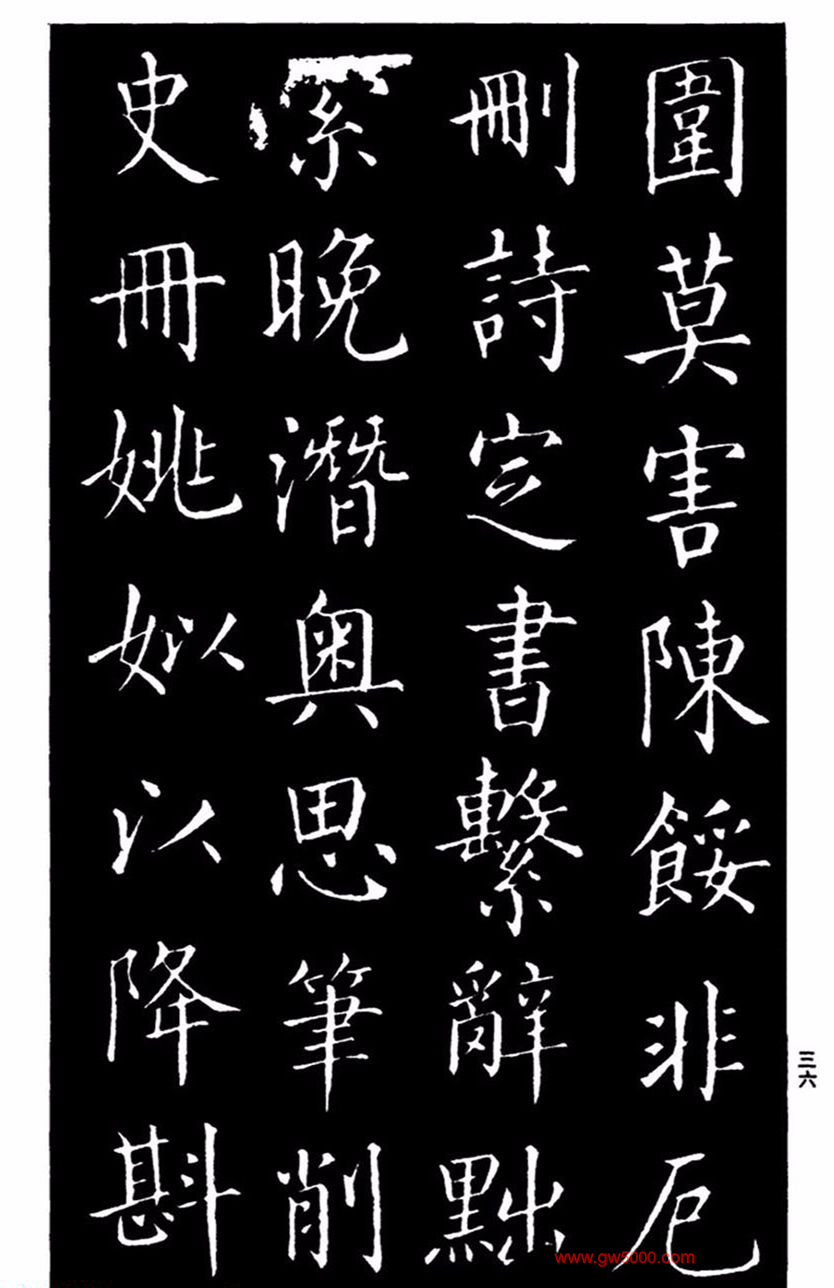 圍莫害陳餒非厄
刪詩定書繫辭黜
索晚潛奥思筆削
史冊姚姒以降斟
三六
www.gw5000.com